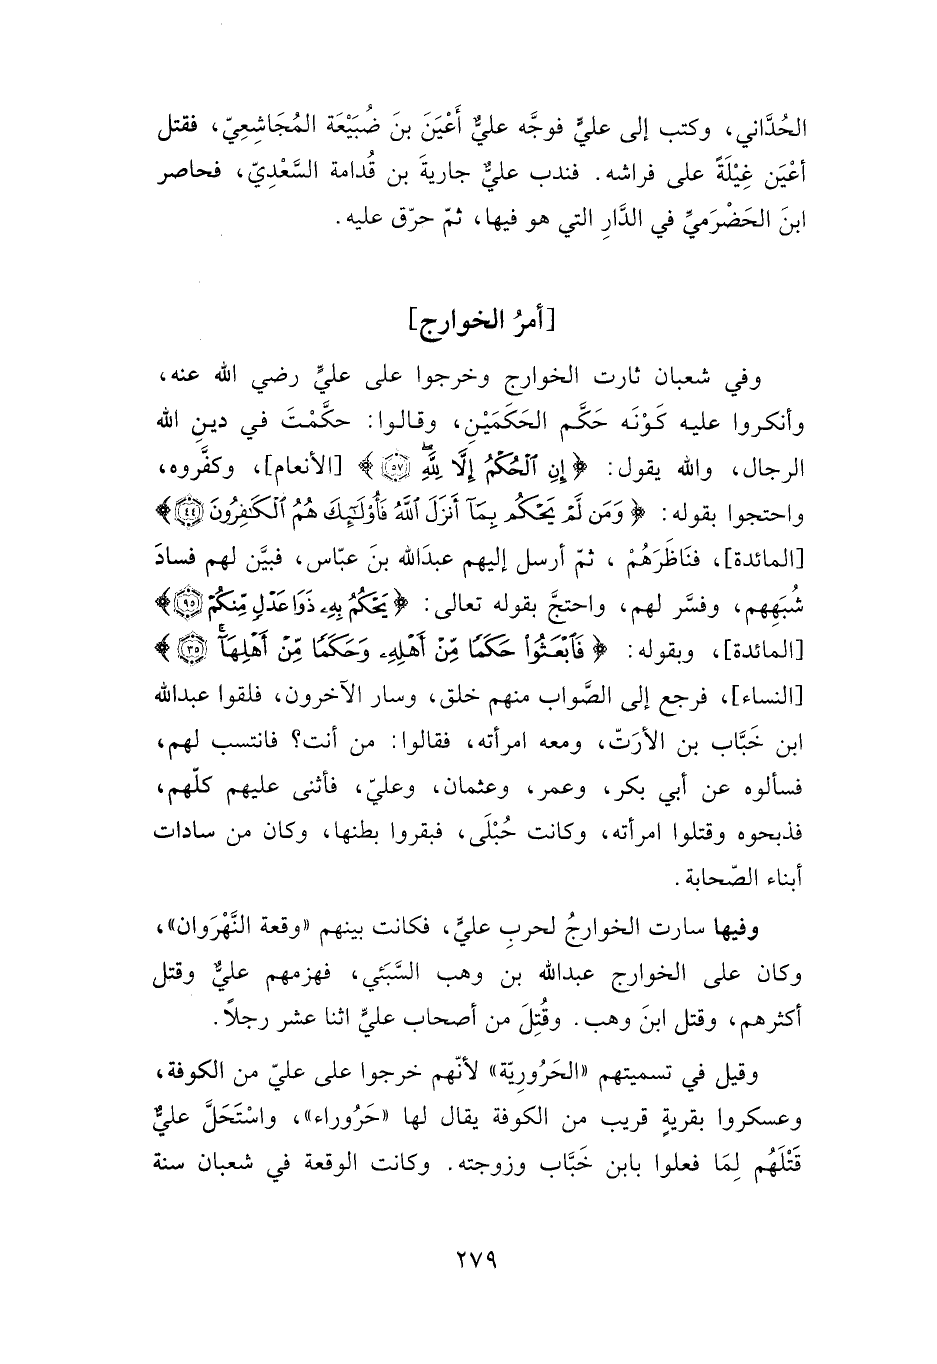 الحُدَّاني، وكتب إلى عليٍّ فوجَّه عليٌّ أَعْيَنَ بنَ ضُبَيْعَة المُجَاشِعِيّ، فقتل
أعْيَن غِيْلَةً على فراشه. فندب عليٌّ جاريةَ بن قُدامة السَّعْدِيّ، فحاصر
ابنَ الحَضْرَميِّ في الدَّارِ التي هو فيها، ثمّ حرّق عليه.
[أمرُ الخوارج]
وفي شعبان ثارت الخوارج وخرجوا على عليٍّ رضي الله عنه،
وأنكروا عليه كَوْنَه حَكَّم الحَكَمَيْنِ، وقالوا: حكَّمْتَ في دينِ الله
الرجال، والله يقول: ﴿إِنِ ٱلْحُكْمُ إِلَّا لِلَّهِۖ ٥٧﴾ [الأنعام]، وكفَّروه،
واحتجوا بقوله: ﴿وَمَن لَّمْ يَحْكُم بِمَآ أَنزَلَ ٱللَّهُ فَأُوْلَٰٓئِكَ هُمُ ٱلْكَٰفِرُونَ ٤٤﴾
[المائدة]، فنَاظَرَهُمْ، ثمّ أرسل إليهم عبدَالله بنَ عبّاس، فبيَّن لهم فسادَ
شُبَهِهم، وفسَّر لهم، واحتجَّ بقوله تعالى: ﴿يَحْكُمُ بِهِۦ ذَوَا عَدْلٍ مِّنكُمْ ٩٥﴾
[المائدة]، وبقوله: ﴿فَٱبْعَثُواْ حَكَمًا مِّنْ أَهْلِهِۦ وَحَكَمًا مِّنْ أَهْلِهَآ ٣٥﴾
[النساء]، فرجع إلى الصَّواب منهم خلق، وسار الآخرون، فلقوا عبدالله
ابن خَبَّاب بن الأرَتّ، ومعه امرأته، فقالوا: من أنت؟ فانتسب لهم،
فسألوه عن أبي بكر، وعمر، وعثمان، وعليّ، فأثنى عليهم كلّهم،
فذبحوه وقتلوا امرأته، وكانت حُبْلَى، فبقروا بطنها، وكان من سادات
أبناء الصّحابة.
وفيها سارت الخوارجُ لحربِ عليٍّ، فكانت بينهم «وقعة النَّهْرَوان»،
وكان على الخوارج عبدالله بن وهب السَّبَئي، فهزمهم عليٌّ وقتل
أكثرهم، وقتل ابنَ وهب. وقُتِلَ من أصحاب عليٍّ اثنا عشر رجلاً.
وقيل في تسميتهم «الحَرُورِيّة» لأنّهم خرجوا على عليّ من الكوفة،
وعسكروا بقريةٍ قريب من الكوفة يقال لها «حَرُوراء»، واسْتَحَلَّ عليٌّ
قَتْلَهُم لِمَا فعلوا بابن خَبَّاب وزوجته. وكانت الوقعة في شعبان سنة
٢٧٩